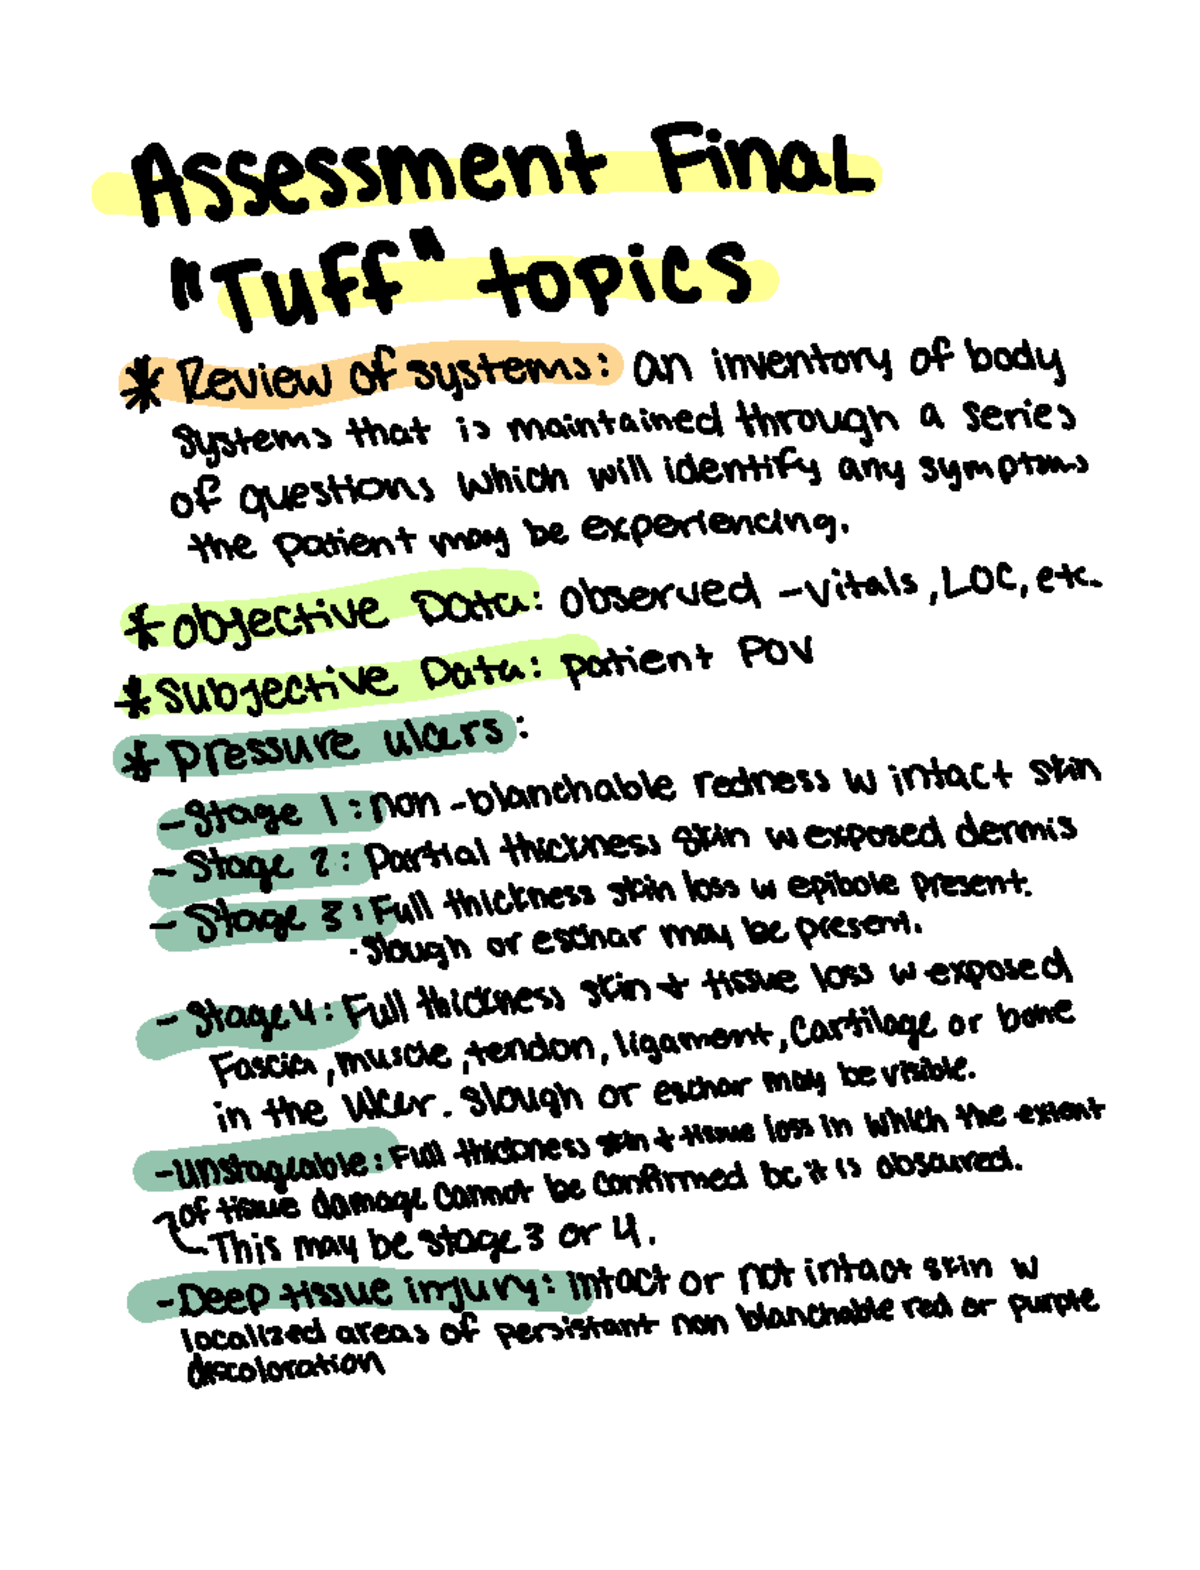 Assessment Final
"Tuff" topics
* Review of systems: an inventory of body
systems that is maintained through a series
of questions which will identify any symptoms
the patient may be experiencing.
* Objective Data: observed - vitals, LOC, etc.
* Subjective Data: patient POV
* Pressure ulcers:
- Stage 1: non-blanchable redness w intact skin
- Stage 2: Partial thickness skin w exposed dermis
- Stage 3: Full thickness skin loss w epibole present.
· Slough or eschar may be present.
- Stage 4: Full thickness skin + tissue loss w exposed
Fascia, muscle, tendon, ligament, Cartilage or bone
in the Ulcer. Slough or eschar may be visible.
- Unstageable: Full thickness skin + tissue loss in which the extent
of tissue damage cannot be confirmed bc it is obscured.
This may be stage 3 or 4.
- Deep tissue injury: intact or not intact skin w
localized areas of persistant non blanchable red or purple
discoloration